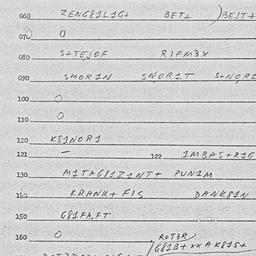 060 ZENG81L1G+ BET+ )BEJT+
070 0
080 S+TEJOF RIFM3X
090 SMOR1N SNOR1T S+NOR1
100 0
110 0
120 K81NOR1
121 — 122 1MBAS+R1G
130 M1TAG81Z1NT+ PUN1M
140 KRANK+ FIS DANK81N
150 G81FA,FT
160 0 R0T3R